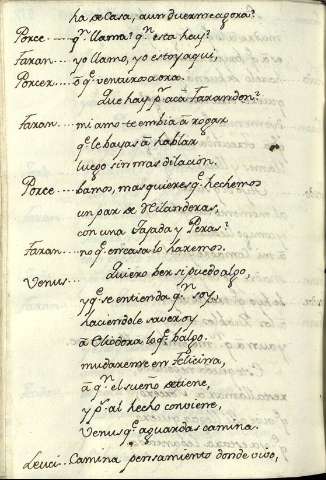 ha de Casa, aun duerme agora?
Porce.... qn. llama? qn. esta hay?
Faran... yo llamo, yo estoy aqui,
Porcer.. o qe. ventairosa ora.
que hay pr. acá Farandon?
Faran.... mi amo te embia á rogar
qe. le bayas á hablar
luego sin mas dilacion.
Porce.... bamos, mas quieres qe. hechemos
un par de Hilanderas,
con una Tajada y Peras?
Faran.... no qe. en casa lo haremos.
Venus... Quiero ber si puedo algo,
y qe. se entienda qn. soy,
haciendole saver oy
á Eliodora lo qe. bálgo.
mudareme en Felicina,
á qn. el sueño detiene,
y pr. al hecho conviene,
Venus qe. aguardas camina.
Leuci.. Camina pensamiento donde vivo,